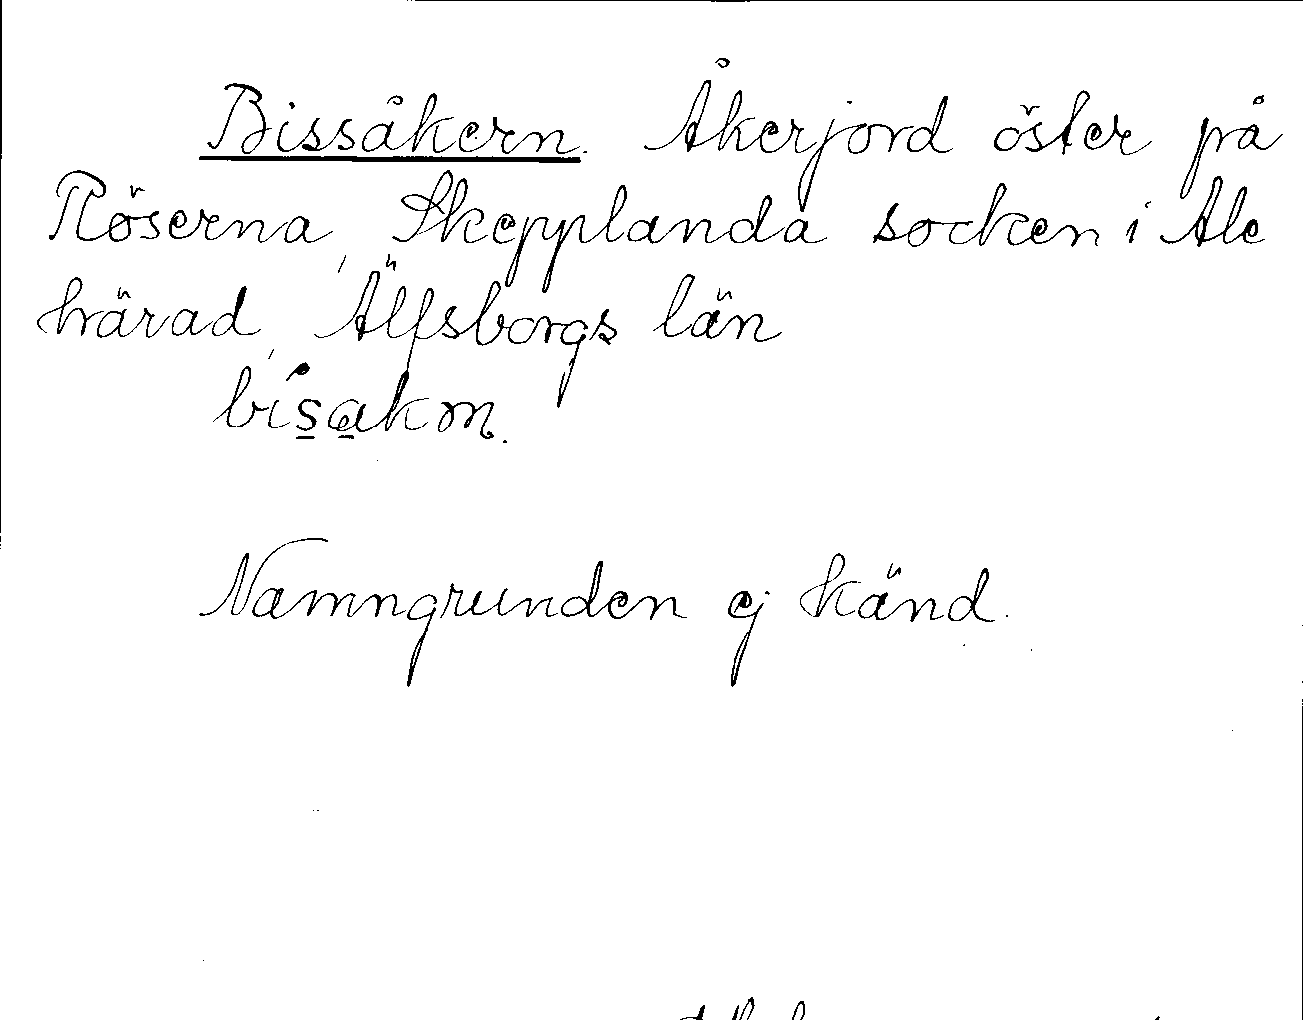 Bissåkern. Åkerjord öster på
Röserna, Skepplanda socken i Ale
härad, Älfsborgs län
bi´s̲a̲kɷn.
Namngrunden ej känd.